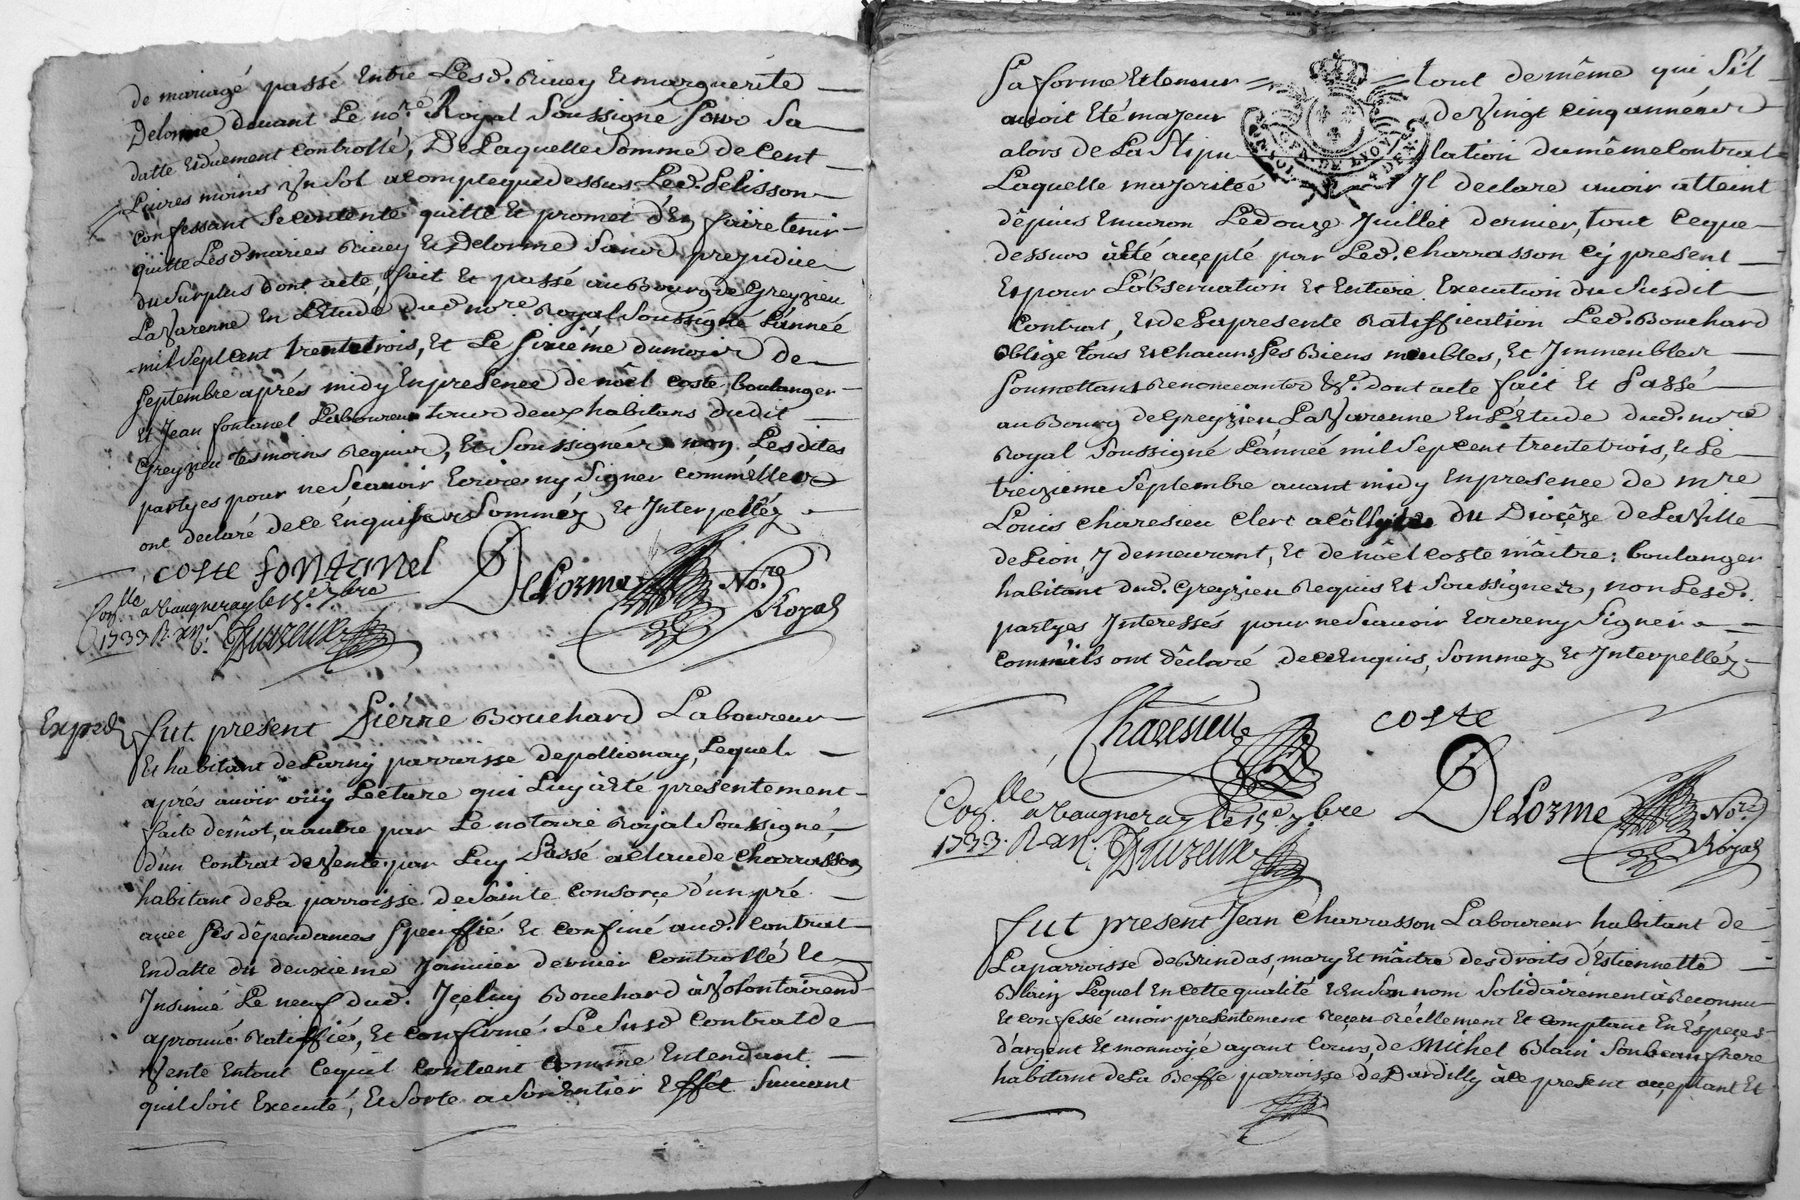 de mariagé passé Entre Lesd. Rivey Et marguérite
Delorme devant Le no.re Royal Soussigné Sous Sa
datte Et duement controllé, De Laquelle Somme de Cent
Livres moins Un Sol a compte que dessus Led. Pelisson
confessant Se contente quitte Et promet d'En faire tenir
quitte Lesd mariés Rivey Et Delorme Sans prejudice
du Surplus dont acte, fait Et passé au Bourg de Greyzieu
La Varenne En L'Etude dud no.re Royal Soussigné L'année
mil Sept Cent trente trois, Et Le Sixiéme du mois de
Septembre aprés midy En presence de nöel coste boulanger
Et Jean fontanel Laboureur tous deux habitans dudit
Greyzieu tesmoins Requis, Et Soussignés non Lesdites
partyes pour ne Scavoir Ecrire ny Signer comm'elles
ont declaré de ce Enquises Sommés Et Interpellés
coste fontanel DeLorme No.re
Royal
Con.llé a Vaugneray le 15.e 7bre
1733. R. xn.s
Exped
fut present Piérre Bouchard Laboureur
Et habitant de Larny parroisse de pollionay, Lequel
aprés avoir oüy Lecture qui Luy à Eté presentement
faite de môt, a autre par Le notaire Royal Soussigné,
d'un contrat de Vente par Luy Passé a Claude Charrasson
habitant de La parroisse de Sainte Consorçe d'un pré
avec Ses dépendances Speciffié Et confiné aud. Contrat
En datte du deuxieme Janvier dernier controllé Et
Insinué Le neuf dud. Içeluy Bouchard à Volontairem.t
aprouvé Ratiffié, Et confirmé Le Susd Contrat de
Vente En tout Cequil contient Comme Entendant
quil Soit Executé, Et Sorte a Son Entier Effet Suivant
Sa forme Et teneur tout de même qui S'il
avoit Eté majeur de Vingt Cinq années
alors de La Stipulation du même Contrat
Laquelle majoritéé Jl declare avoir atteint
dépuis Environ Le douze Juillet dernier, tout Ceque
dessus à Eté accepté par Led. Charrasson Cy present
Et pour L'obServation Et Entiere Execution du Susdit
Contrat, Et de La presente Ratiffication Led. Bouchard
oblige tous Et chacuns Ses Biens meubles, Et Jmmeubles
Soumettans Renonceantes &c. dont acte fait Et Passé
au Bourg de Greyzieu La Varenne En L'Etude dud. no.re
Royal Soussigné L'année mil Sept cent trente trois, Et Le
treizieme Séptembre avant midy En presence de m.re
Louis Charesieu Clerc acôllyte du Diocêze de La Ville
de Lion, y demeurant, Et de nôel coste mâitre boulanger
habitant dud. Greyzieu Requis Et Soussignés, non Lesd.
partyes Interessés pour ne Scavoir Ecrire ny Signer
comm'ils ont dêclaré de ce Enquis, Sommez Et Interpelléz
Charesieu coste
DeLorme No.re
Royal
Con.llé a Vaugneray le 15.e 7bre
1733. R. xn.s
fut present Jean Charrasson Laboureur habitant de
La parroisse de Brindas, mary Et mâitre des droits d'Estiennette
Blain Lequel En cette qualité Et En Son nom Solidairement à Reconnu
Et confessé avoir presentement Reçeu Réellement Et comptant En Espeçes
d'argent Et monnoyé ayant Cours, de Michel Blain Son beau frere
habitant de La Beffe parroisse de Dardilly à ce present acceptant Et